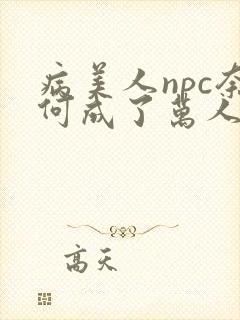 病美人npc奈
何成了萬人
高天